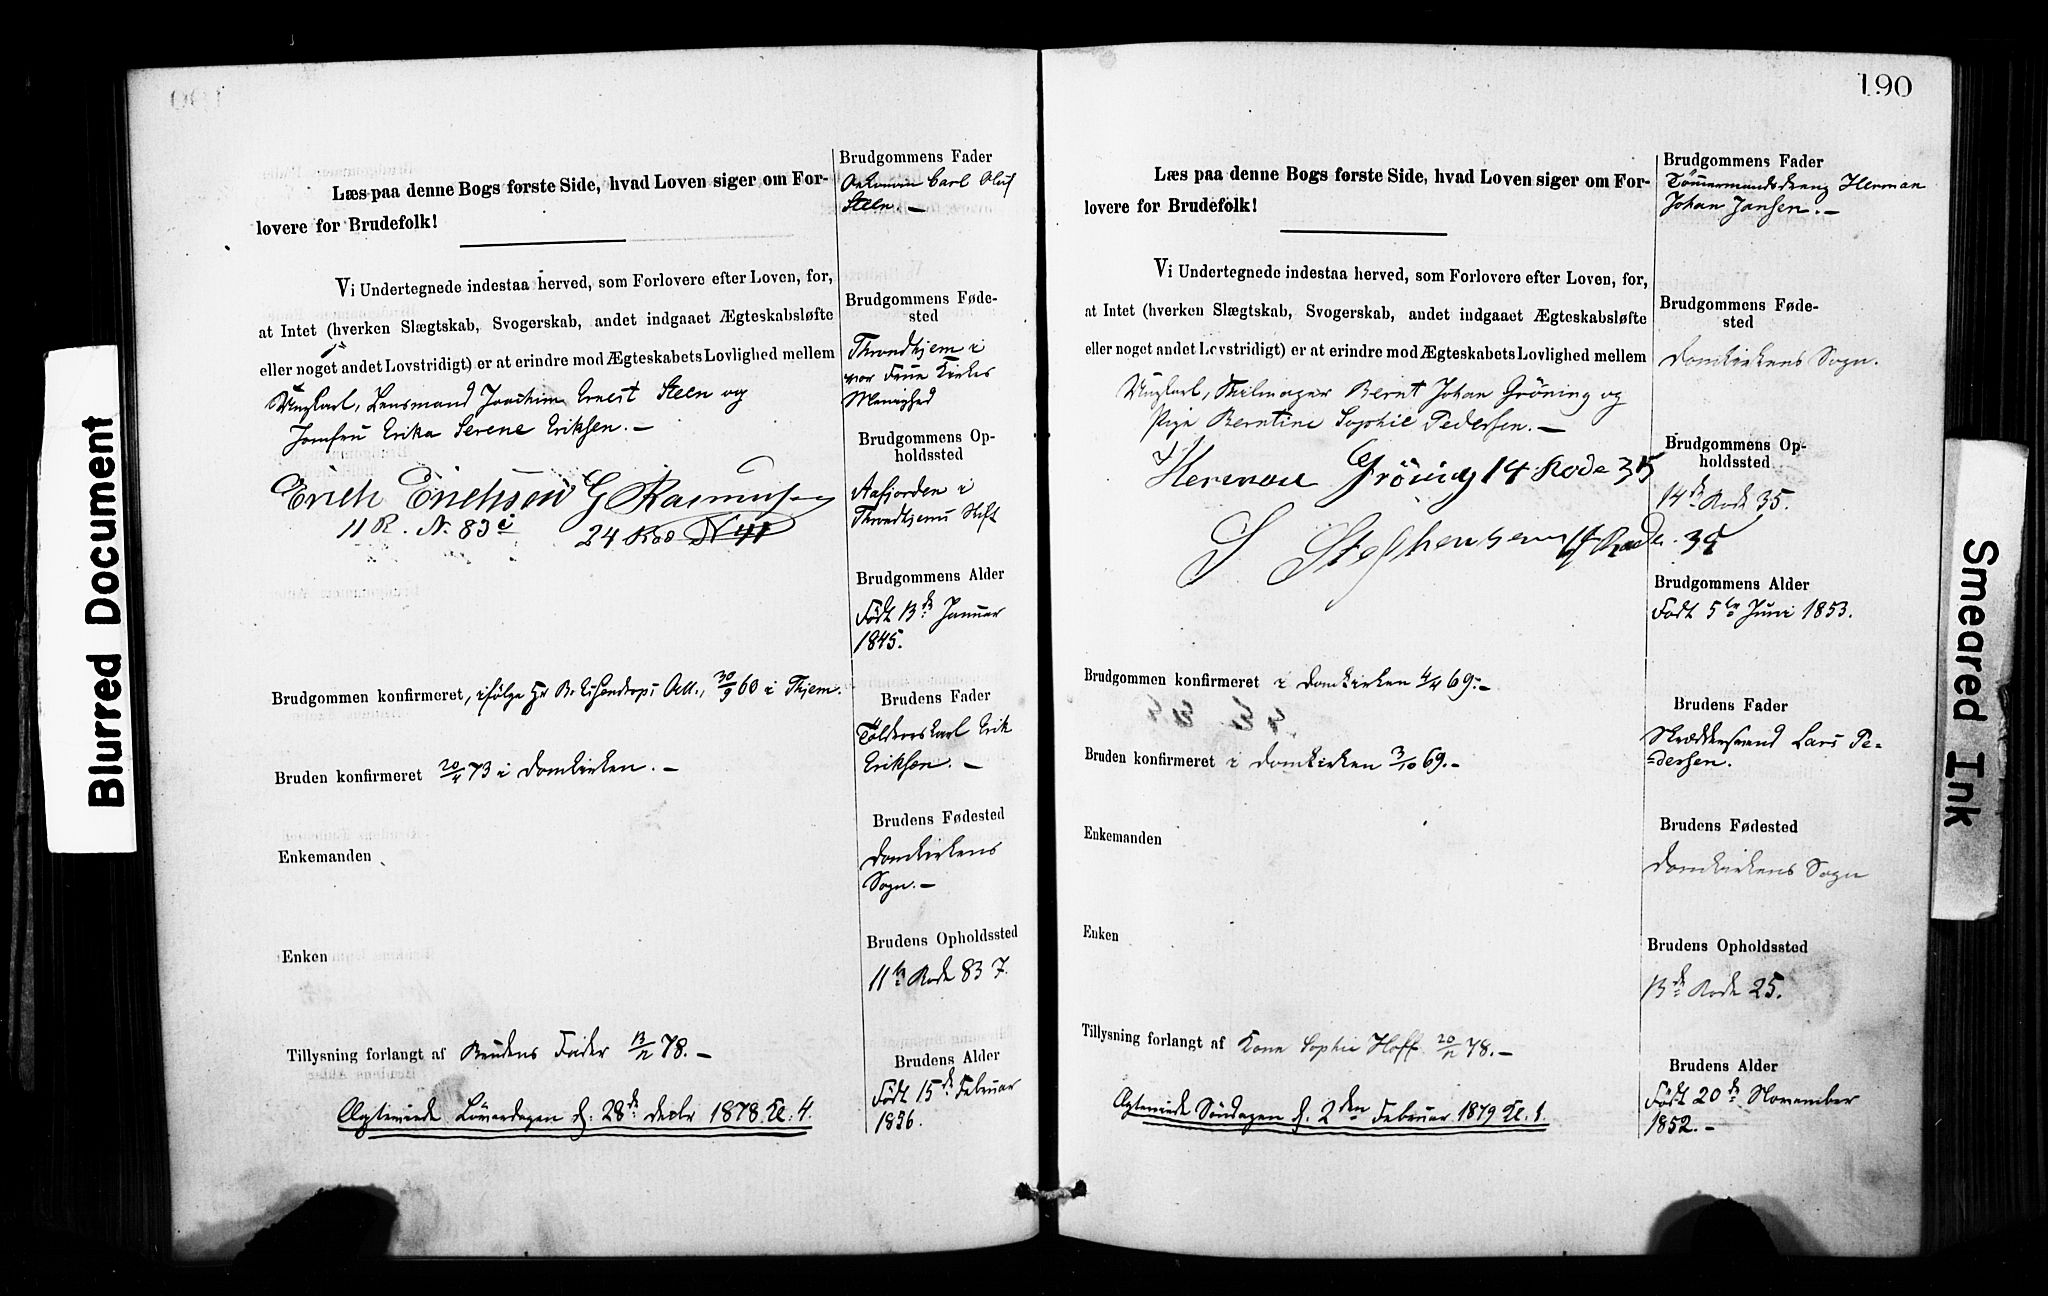 Blurred Document
Læs paa denne Bogs første Side, hvad Loven siger om For-
lovere for Brudefolk!
Vi Undertegnede indestaa herved, som Forlovere efter Loven, for,
at Intet (hverken Slægtskab, Svogerskab, andet indgaaet Ægteskabsløfte
eller noget andet Lovstridigt) er at erindre mod Ægteskabets Lovlighed mellem
Ungkarl, Lensmand Joachim Ernest Steen og
Jomfru Erika Serene Eriksen. —
Erich Erichsen G Rasmussen
11 R. N. 83
24 Rod N 41
Brudgommen konfirmeret, ifølge Hr 30/9 60 i Thjem.
Bruden konfirmeret 20/4 73 i Domkirken. —
Enkemanden
Enken
Tillysning forlangt af Brudens Fader 13/12 78. —
Ægteviede Løverdagen d. 28de Decbr 1878 Kl. 4.
Brudgommens Fader
Carl
Steen. —
Brudgommens Føde-
sted
Throndhjem i
vor Frue Kirkes
Menighed
Brudgommens Op-
holdssted
Aafjorden i
Throndhjems Stift
Brudgommens Alder
Født 13de Januar
1845.
Brudens Fader
Toldkarl Erik
Eriksen. —
Brudens Fødested
Domkirkens
Sogn. —
Brudens Opholdssted
11te Rode 83
Brudens Alder
Født 15de Februar
1856.
190
Læs paa denne Bogs første Side, hvad Loven siger om For-
lovere for Brudefolk!
Vi Undertegnede indestaa herved, som Forlovere efter Loven, for,
at Intet (hverken Slægtskab, Svogerskab, andet indgaaet Ægteskabsløfte
eller noget andet Lovstridigt) er at erindre mod Ægteskabets Lovlighed mellem
Ungkarl, Seilmager Bernt Johan Grøning og
Pige Berntine Sophie Pedersen. —
Herman Gröning 14 Rode 35
S Stephensen 14 Rode
Brudgommen konfirmeret i Domkirken 4/4 69. —
Bruden konfirmeret i Domkirken 3/10 69. —
Enkemanden
Enken
Tillysning forlangt af Kone Sophie Hoff 20/12 78. —
Ægteviede Søndagen d. 2den Februar 1879 Kl. 1.
Brudgommens Fader
Tømmermandsdreng Herman
Johan Jansen. —
Brudgommens Føde-
sted
Domkirkens Sogn.
Brudgommens Op-
holdssted
14de Rode 35.
Brudgommens Alder
Født 5te Juni 1853.
Brudens Fader
Skræddersvend Lars Pe-
dersen.
Brudens Fødested
Domkirkens Sogn
Brudens Opholdssted
13de Rode 25.
Brudens Alder
Født 20de November
1852. —
Smeared Ink